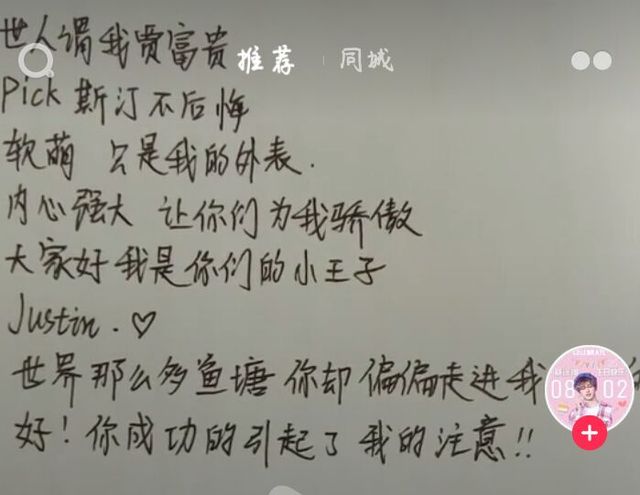 世人谓我贤富贵
推荐
同城
Pick 斯汀不后悔
软萌 只是我的外表.
内心强大 让你们为我骄傲
大家好我是你们的小王子
Justin. ♡
世界那么多鱼塘 你却偏偏走进我
好!你成功的引起了我的注意!!
CELEBRATE
08 02